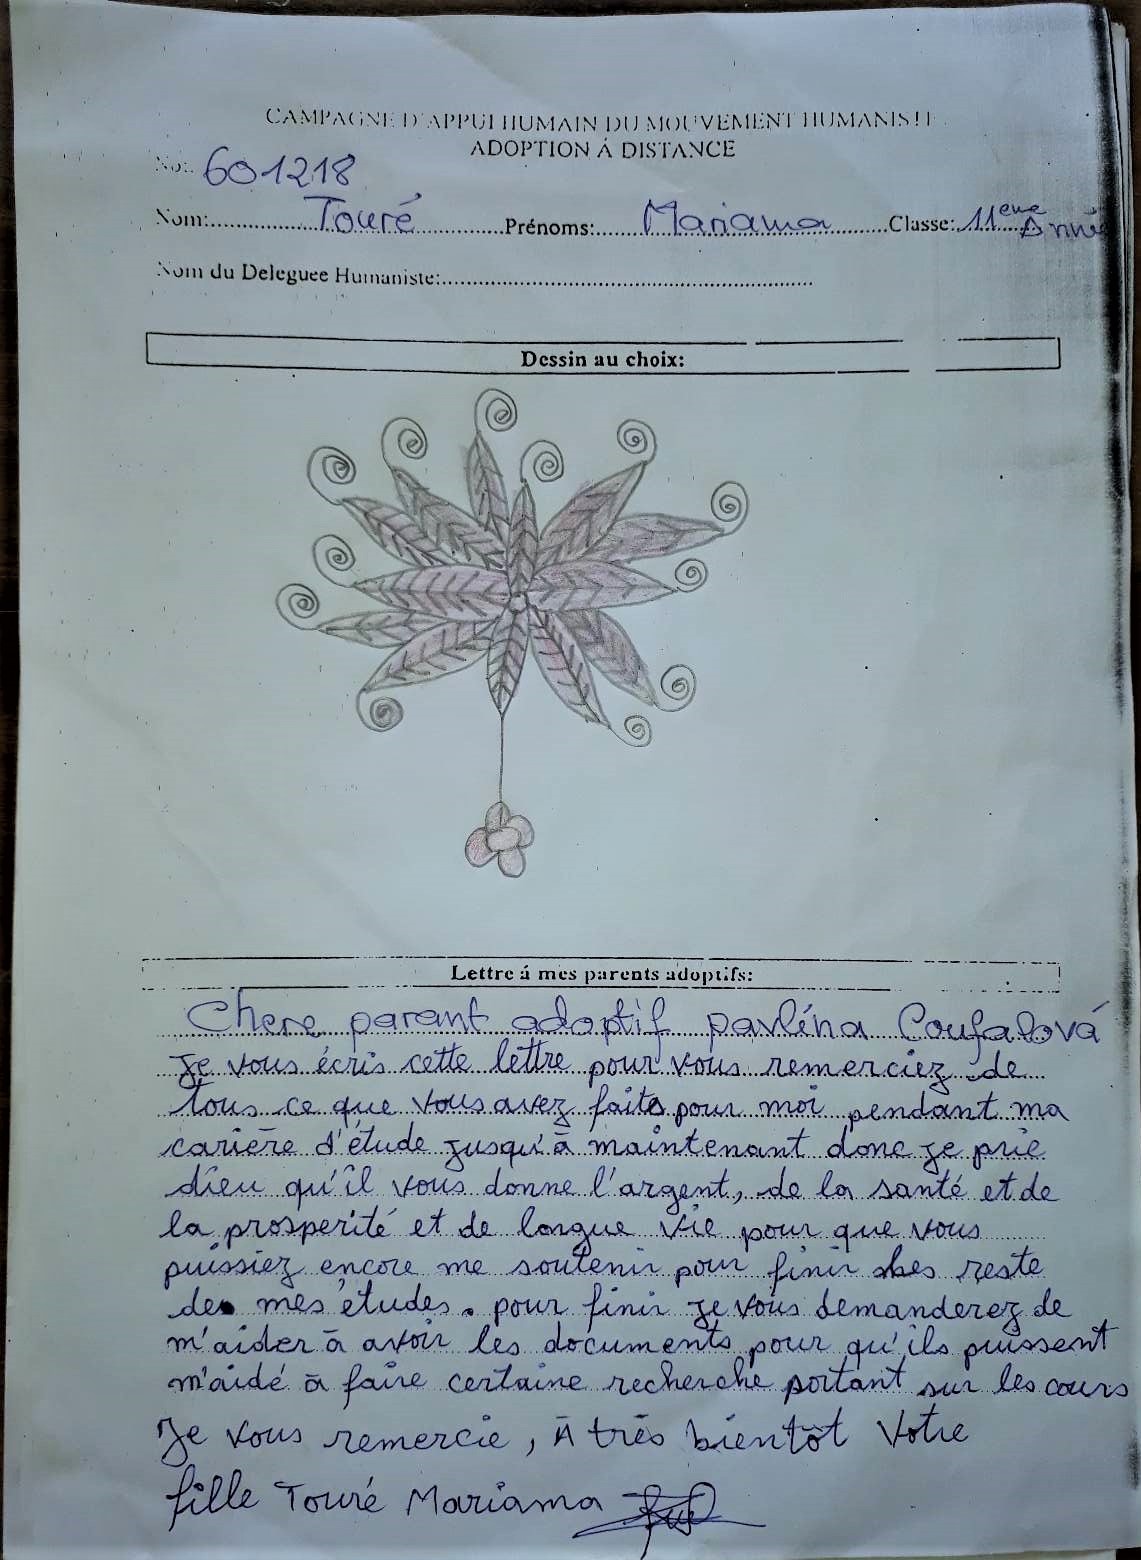 CAMPAGNE D'APPUI HUMAIN DU MOUVEMENT HUMANISTE
ADOPTION Á DISTANCE
No: 601218
Nom: Touré Prénoms: Mariama Classe: 11eme Année
Nom du Deleguee Humaniste:
Dessin au choix:
Lettre á mes parents adoptifs:
Chere parant adoptif pavlína Coufalová
Je vous écris cette lettre pour vous remerciez de
tous ce que vous avez faits pour moi pendant ma
carière d'étude jusqu'à maintenant donc je prie
dieu qu'il vous donne l'argent, de la santé et de
la prosperité et de longue vie pour que vous
puissiez encore me soutenir pour finir des reste
de mes études. pour finir je vous demanderez de
m'aider à avoir les documents pour qu'ils puissent
m'aidé à faire certaine recherche portant sur les cours
Je vous remercie, À très bientôt Votre
fille Touré Mariama